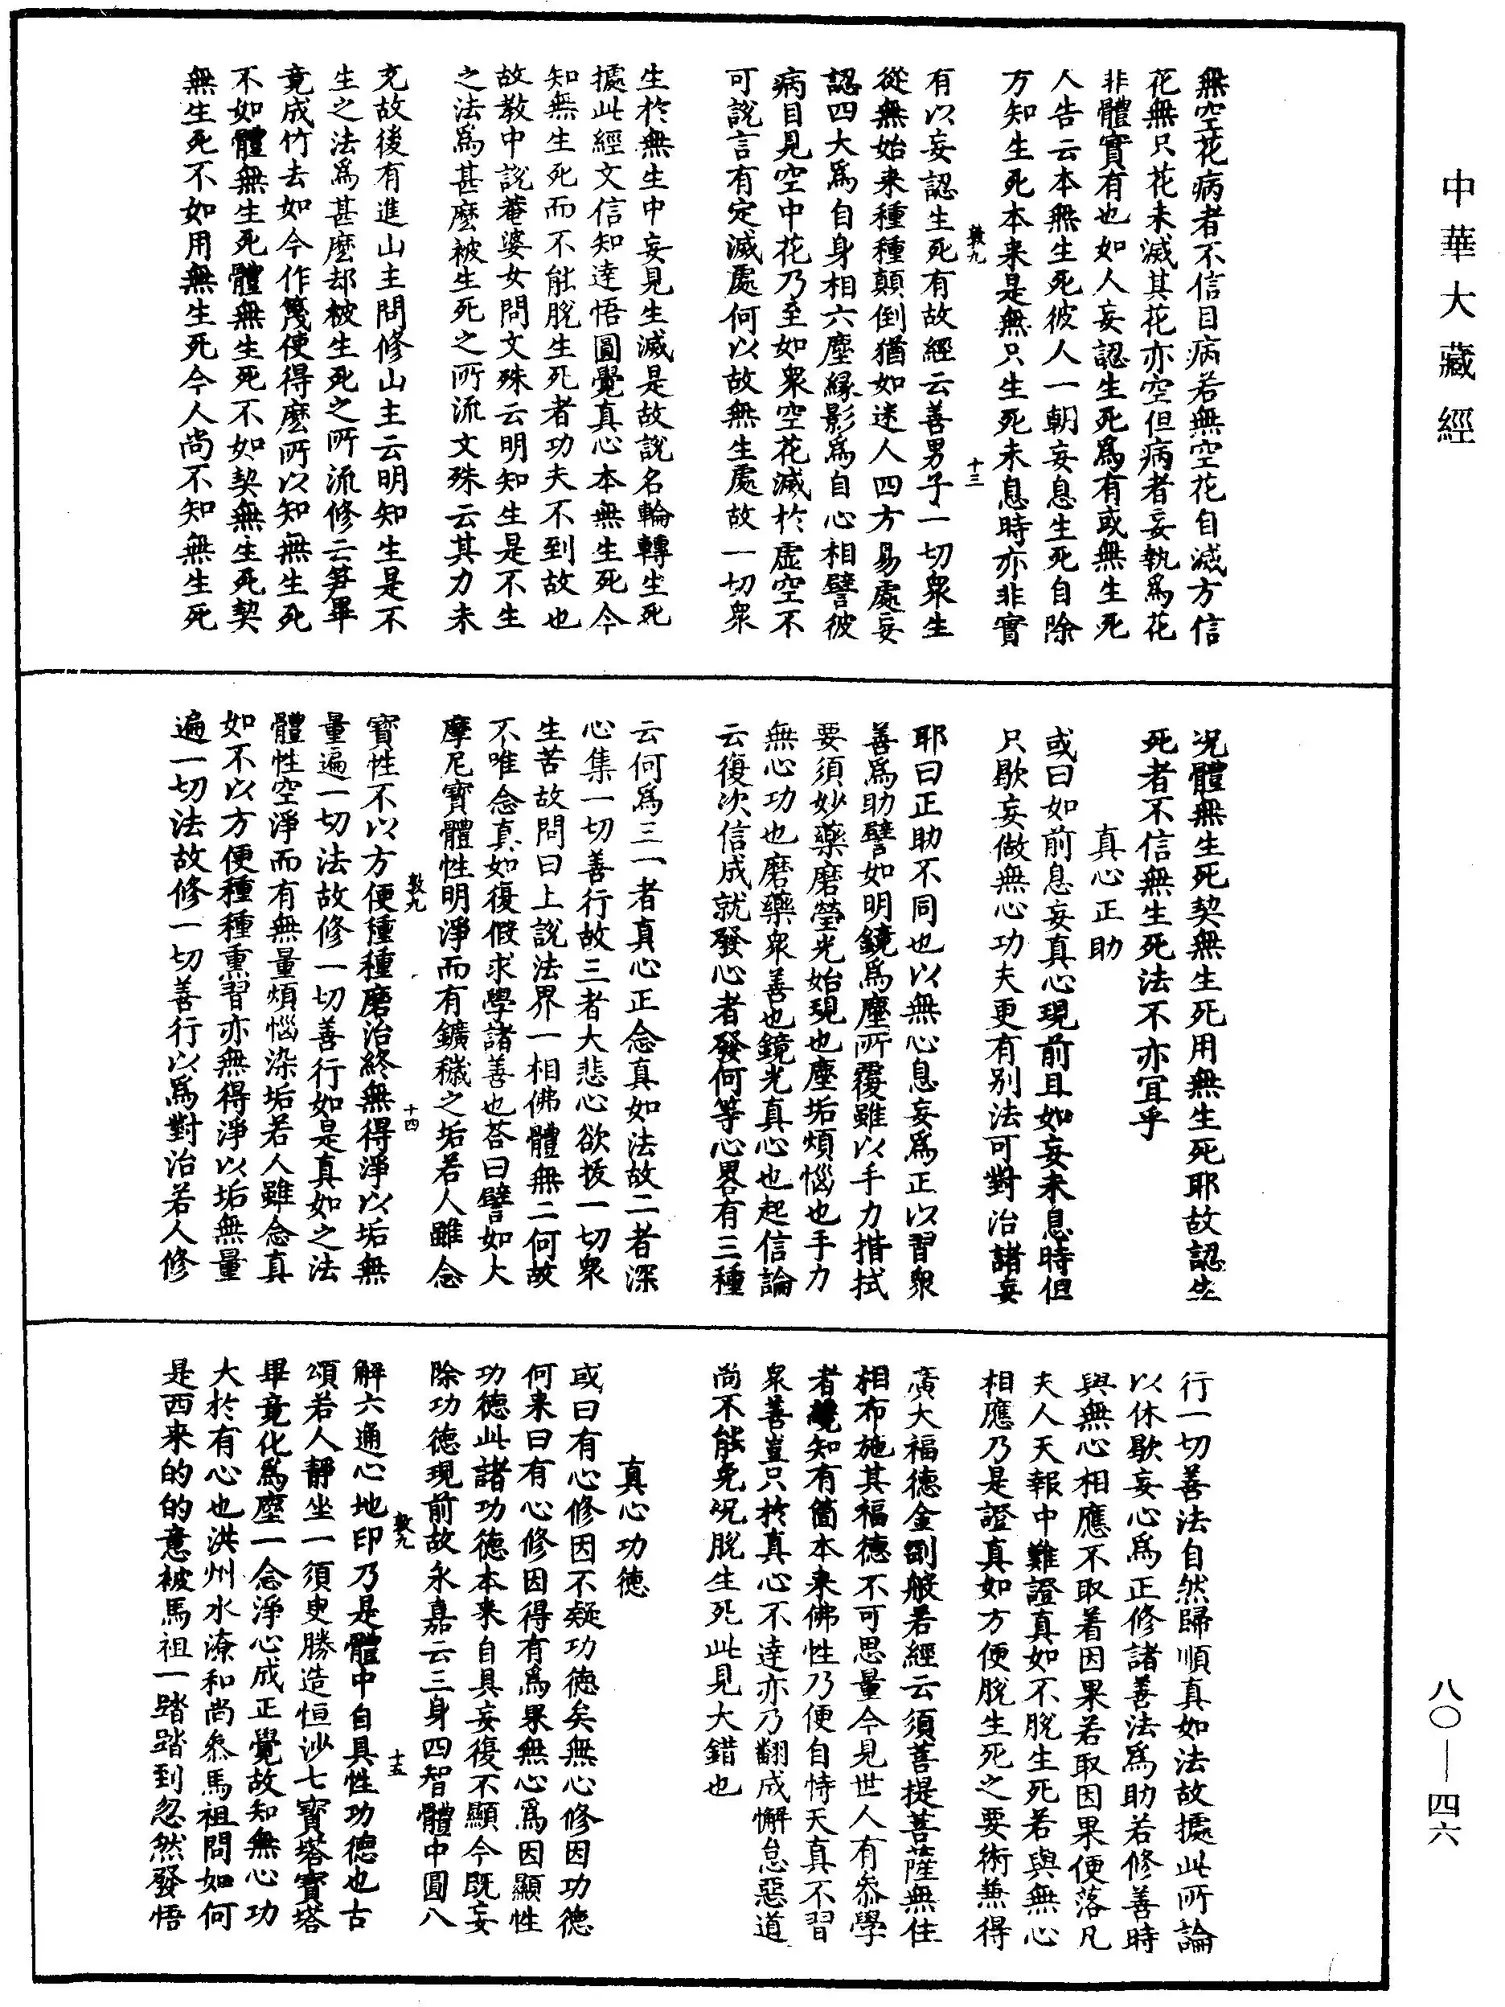 中華大藏經
無空花病者不信目病若無空花自滅方信
花無只花未滅其花亦空但病者妄執為花
非體實有也如人妄認生死為有或無生死
人告云本無生死彼人一朝妄息生死自除
方知生死本来是無只生死未息時亦非實
敦九 十三
有以妄認生死有故經云善男子一切衆生
從無始来種種顛倒猶如迷人四方易處妄
認四大為自身相六塵緣影為自心相譬彼
病目見空中花乃至如衆空花滅於虛空不
可說言有定滅處何以故無生處故一切衆
生於無生中妄見生滅是故說名輪轉生死
據此經文信知達悟圓覺真心本無生死今
知無生死而不能脫生死者功夫不到故也
故教中說菴婆女問文殊云明知生是不生
之法為甚麼被生死之所流文殊云其力未
充故後有進山主問修山主云明知生是不
生之法為甚麼却被生死之所流修云笋畢
竟成竹去如今作篾使得麼所以知無生死
不如體無生死體無生死不如契無生死契
無生死不如用無生死今人尚不知無生死
况體無生死契無生死用無生死耶故認生
死者不信無生死法不亦宜乎
真心正助
或曰如前息妄真心現前且如妄未息時但
只歇妄做無心功夫更有别法可對治諸妄
耶曰正助不同也以無心息妄為正以習衆
善為助譬如明鏡為塵所覆雖以手力揩拭
要須妙藥磨瑩光始現也塵垢煩惱也手力
無心功也磨藥衆善也鏡光真心也起信論
云復次信成就發心者發何等心畧有三種
云何為三一者真心正念真如法故二者深
心集一切善行故三者大悲心欲拔一切衆
生苦故問曰上說法界一相佛體無二何故
不唯念真如復假求學諸善也荅曰譬如大
摩尼寶體性明淨而有鑛穢之垢若人雖念
敦九 十四
寶性不以方便種種磨治終無得淨以垢無
量遍一切法故修一切善行如是真如之法
體性空淨而有無量煩惱染垢若人雖念真
如不以方便種種熏習亦無得淨以垢無量
遍一切法故修一切善行以為對治若人修
行一切善法自然歸順真如法故據此所論
以休歇妄心為正修諸善法為助若修善時
與無心相應不取着因果若取因果便落凡
夫人天報中難證真如不脫生死若與無心
相應乃是證真如方便脫生死之要術兼得
廣大福德金剛般若經云須菩提菩薩無住
相布施其福德不可思量今見世人有叅學
者纔知有箇本来佛性乃便自恃天真不習
衆善豈只於真心不達亦乃翻成懈怠惡道
尚不能免况脫生死此見大錯也
真心功德
或曰有心修因不疑功德矣無心修因功德
何来曰有心修因得有為果無心為因顯性
功德此諸功德本来自具妄復不顯今既妄
除功德現前故永嘉云三身四智體中圓八
敦九 十五
解六通心地印乃是體中自具性功德也古
頌若人靜坐一須臾勝造恒沙七寶塔寶塔
畢竟化為塵一念淨心成正覺故知無心功
大於有心也洪州水潦和尚叅馬祖問如何
是西来的的意被馬祖一踏踏到忽然發悟
八〇—四六